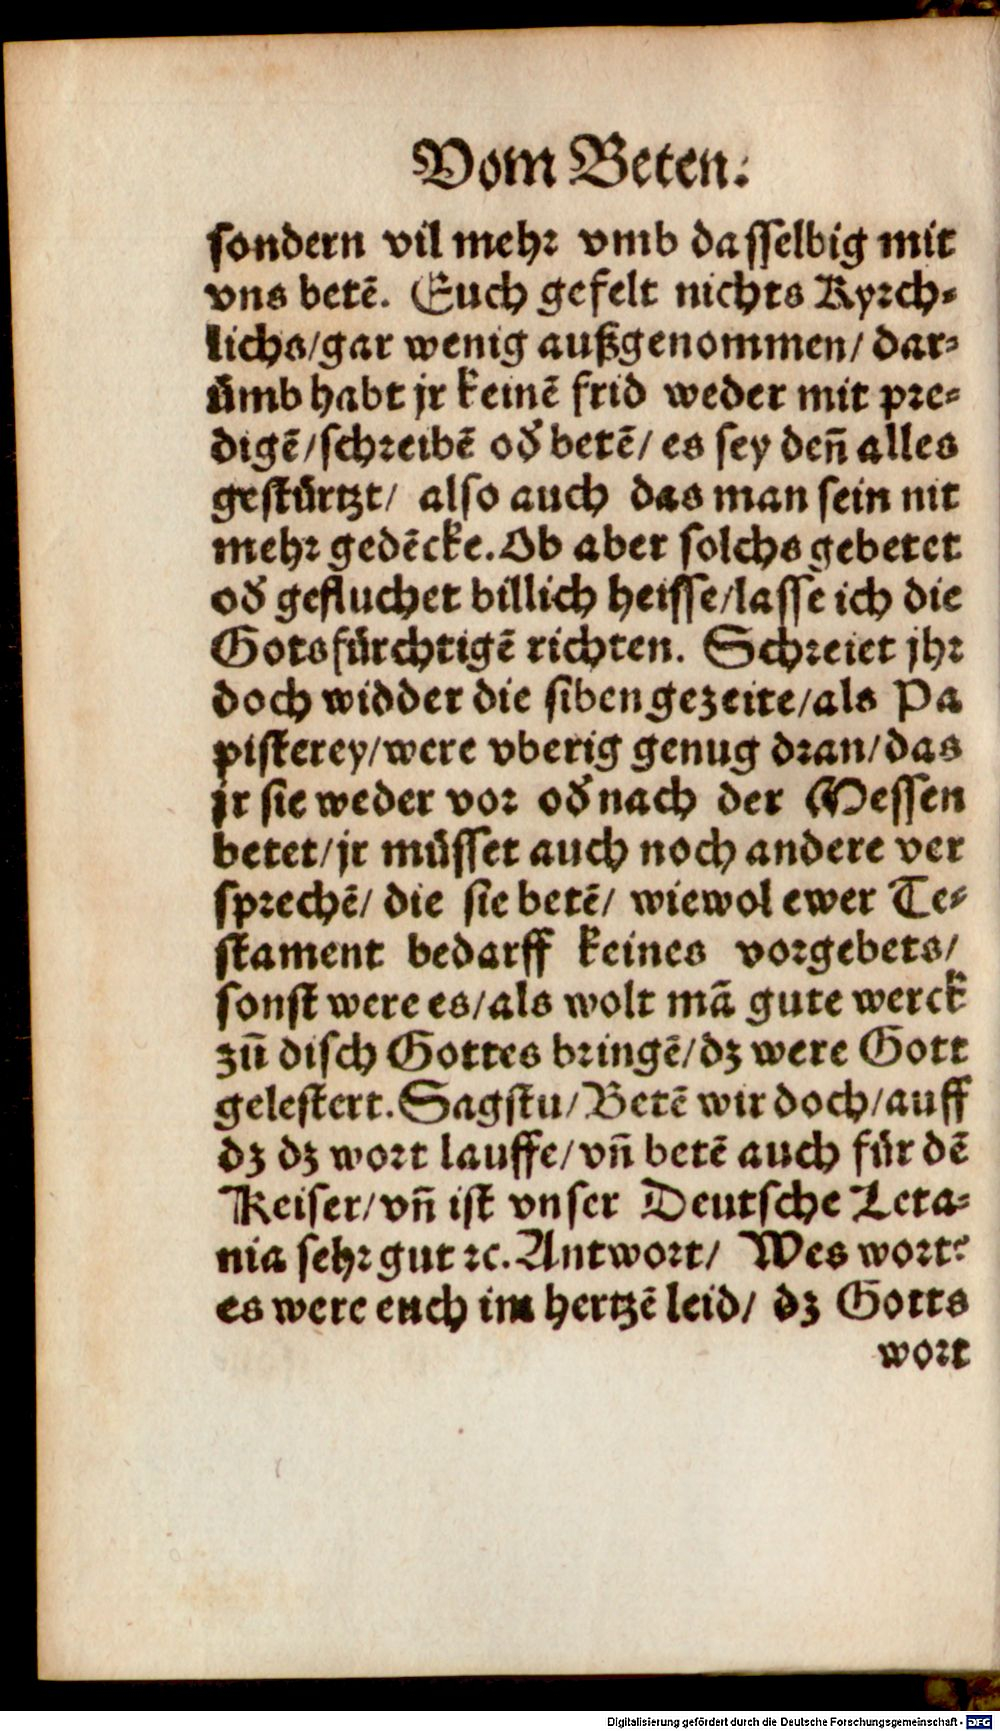 Vom Beten.
sondern vil mehr vmb dasselbig mit
vns betē. Euch gefelt nichts Kyrch-
lichs/gar wenig außgenommen/ dar-
ümb habt jr keinē frid weder mit pre-
digē/schreibē od̄ betē/ es sey deñ alles
gestürtzt/ also auch das man sein nit
mehr gedēcke. Ob aber solchs gebetet
od̄ gefluchet billich heisse/lasse ich die
Gotsfürchtigē richten. Schreiet jhr
doch widder die siben gezeite/als Pa
pisterey/were vberig genug dran/das
jr sie weder vor od̄ nach der Messen
betet/jr müsset auch noch andere ver
sprechē/ die sie betē/ wiewol ewer Te-
stament bedarff keines vorgebets/
sonst were es/als wolt mā gute werck
zū disch Gottes bringē/dz were Gott
gelestert. Sagstu/Betē wir doch/auff
dz dz wort lauffe/vñ betē auch für dē
Keiser/vñ ist vnser Deutsche Leta-
nia sehr gut ꝛc. Antwort/ Wes wort?
es were euch im hertzē leid/ dz Gotts
wort
Digitalisierung gefördert durch die Deutsche Forschungsgemeinschaft - DFG